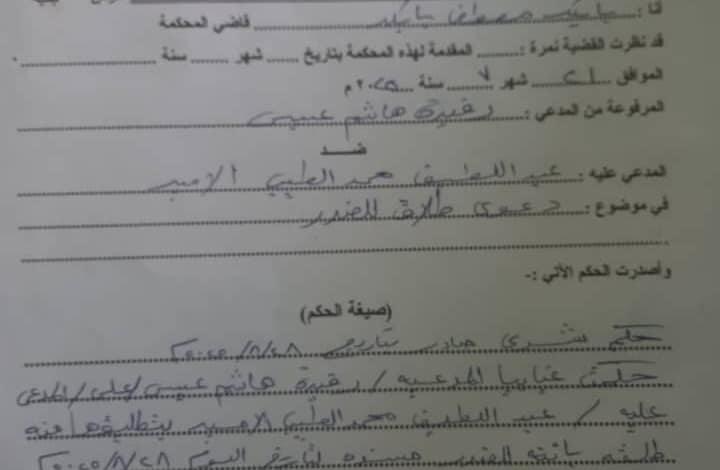 أنا : بابكر مصطفى بابكر قاضي المحكمة
قد نظرت القضية نمرة : ......... المقدمة لهذه المحكمة بتاريخ ....... شهر ........ سنة
الموافق ٢١ شهر ٧ سنة ٢٠٢٥ م
المرفوعة من المدعي : رقية هاشم عيسى
ضــد
المدعي عليه : عبد اللطيف محمد الطيب الأمير
في موضوع : دعوى طلاق للضرر
وأصدرت الحكم الأتي :-
(صيغة الحكم)
حكم شرعي صادر بتاريخ ٢٠٢٥/٨/٢٨
حكمت غيابيا للمدعية / رقية هاشم عيسى / على / المدعى
عليه / عبد اللطيف محمد الطيب الأمير بتطليقها منه
طلقة بائنة للضرر مسندة لتاريخ اليوم ٢٠٢٥/٨/٢٨